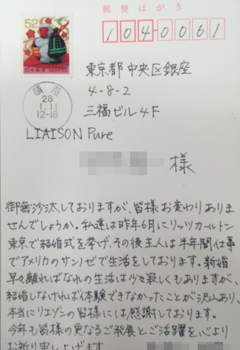 郵便はがき
52
1040061
晴海
28
1.11
12-18
東京都中央区銀座
4-8-2
三福ビル4F
LIAISON Pure
様
御無沙汰しておりますが、皆様お変わりありま
せんでしょうか。私達は昨年6月にリッツカールトン
東京で結婚式を挙げ、その後主人は半年間仕事
でアメリカのサンノゼで生活をしております。新婚
早々離ればなれの生活は少々寂しくもありますが、
結婚しなければ体験できなかったことが沢山あり、
本当にリエゾンの皆様には感謝しております。
今年も皆様の更なるご発展とご活躍を心より
お祈り申し上げます